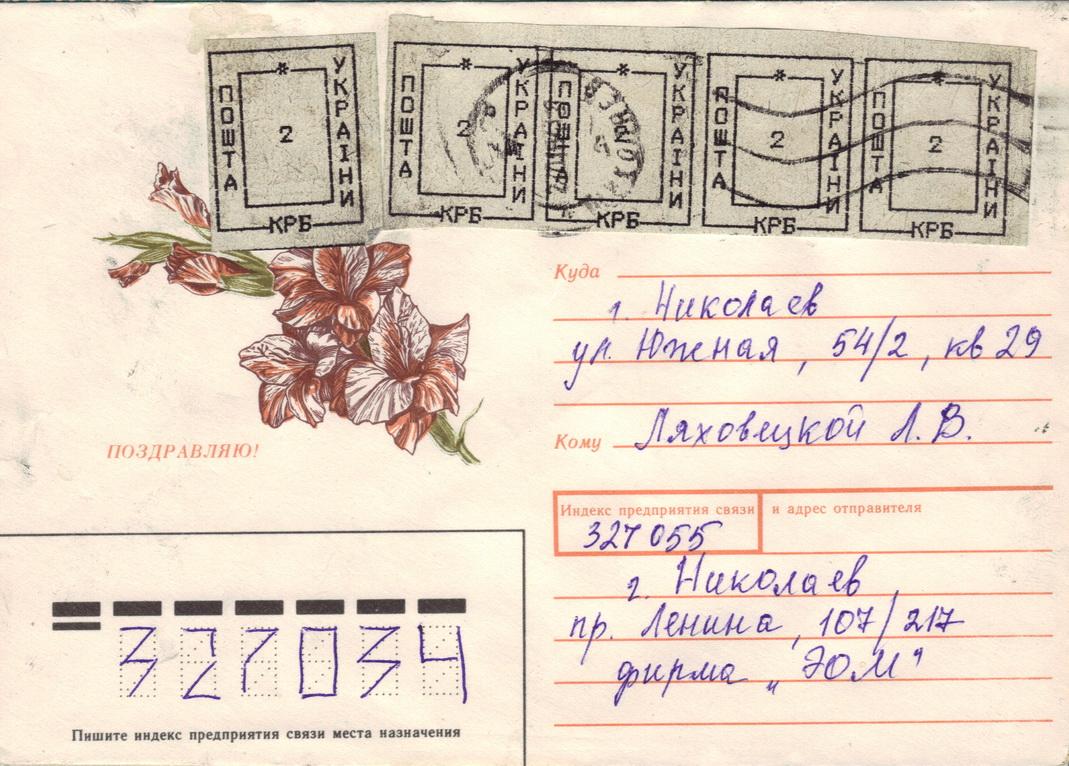 ПОШТА 2 УКРАІНИ КРБ
ПОШТА 2 УКРАІНИ КРБ
ПОШТА УКРАІНИ КРБ
ПОШТА 2 УКРАІНИ КРБ
ПОШТА 2 УКРАІНИ КРБ
Куда
г. Николаев
ул. Южная, 54/2, кв 29
Кому Ляховецкой Л. В.
ПОЗДРАВЛЯЮ!
Индекс предприятия связи и адрес отправителя
327055
г. Николаев
пр. Ленина, 107/217
фирма „ЭОМ"
327034
Пишите индекс предприятия связи места назначения